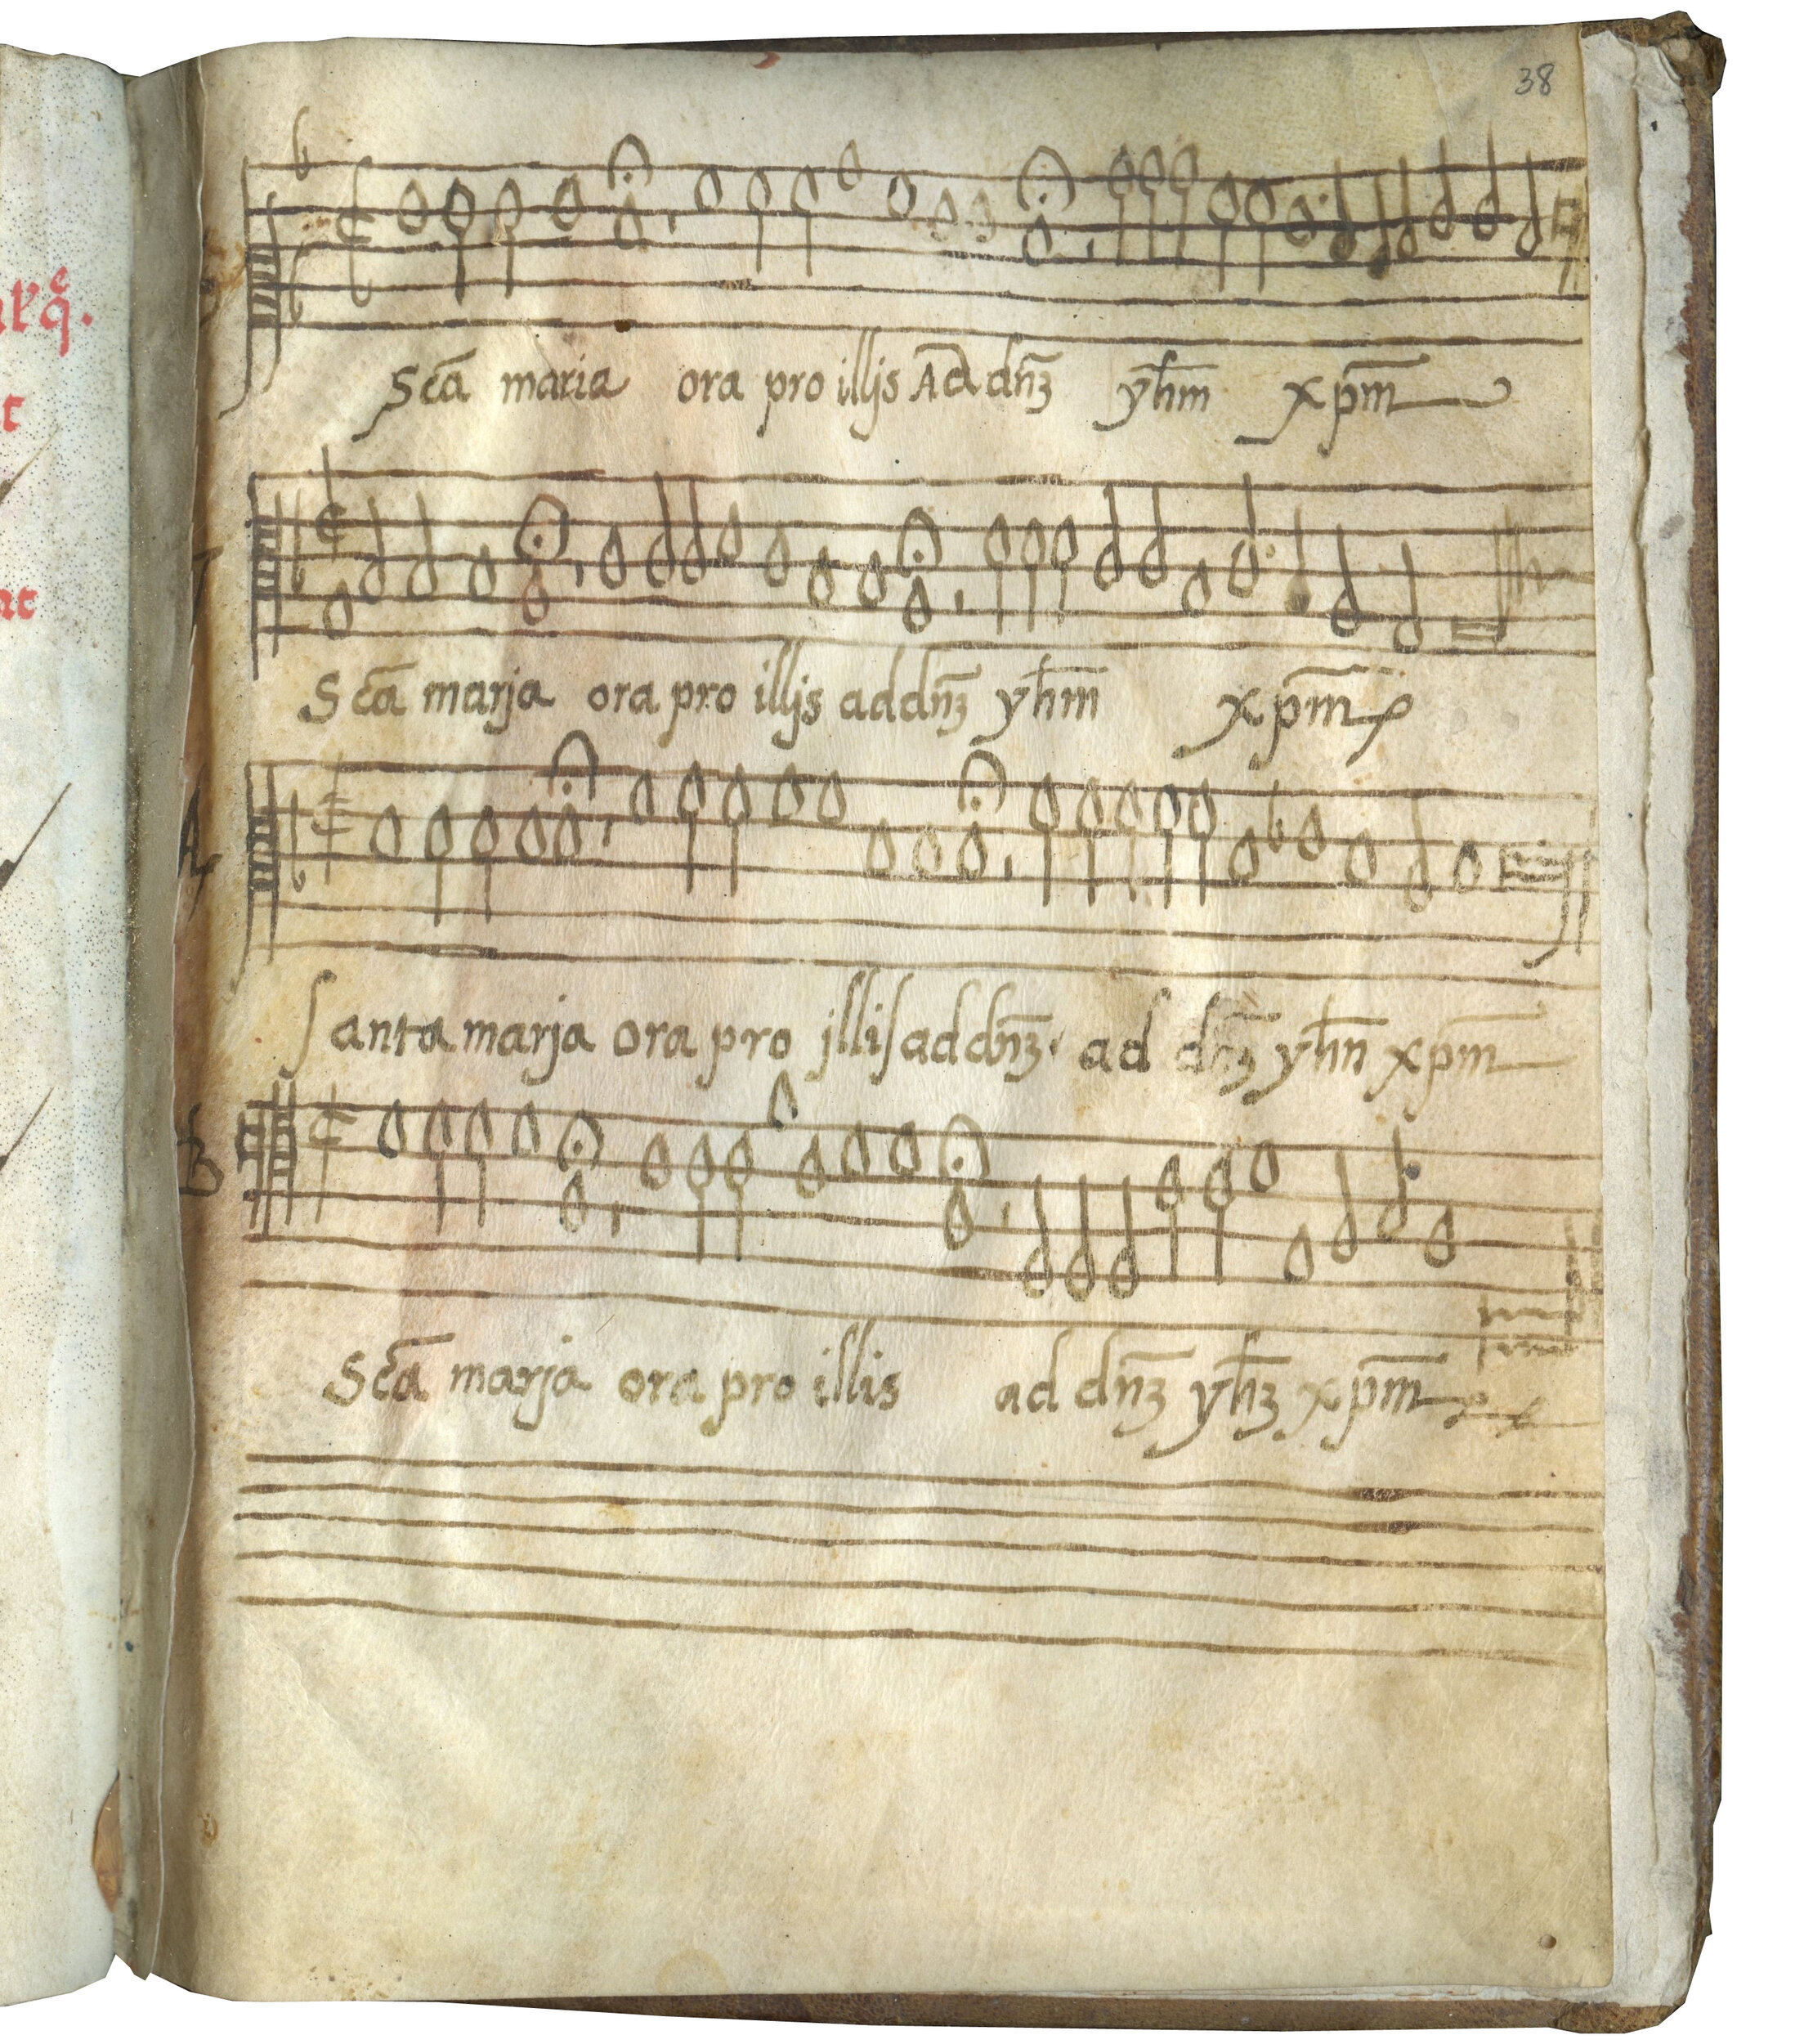 38
Scã maria ora pro illjs Ad dñꝫ yh̄m xp̄m
T
Scã marja ora pro illjs ad dñꝫ yh̄m xp̄m
A
ſanta marja ora pro jlliſ ad dñꝫ ad dñꝫ yh̄n xp̄m
B
Scã marja ora pro illis ad dñꝫ yh̄ꝫ xp̄m